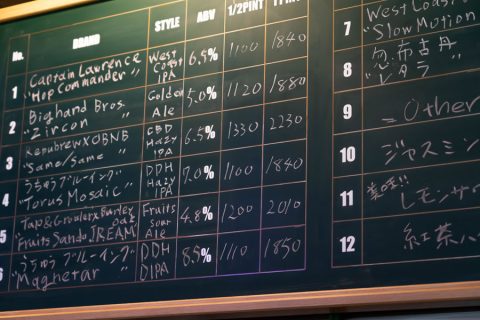 No. BRAND STYLE ABV 1/2PINT
1 Captain Lawrence "Hop Commander" West Coast IPA 6.5% 1100 1840
2 Bighand Bros. "Zircon" Golden Ale 5.0% 1120 1880
3 RepubrewXOBNB "Same/Same" CBD Hazy IPA 6.5% 1330 2230
4 うちゅうブルーイング "Torus Mosaic" DDH Hazy IPA 7.0% 1100 1840
5 "Fruits Sando IREAM" Fruits Sour Ale 4.8% 1200 2010
6 "うちゅうブルーイング" Magnetar" DDH DIPA 8.5% 1110 1850
7 West Coast "Slow Motion
8 忽布古丹 "レタラ"
9 = Other
10 ジャスミン
11 レモンサ
12 紅茶ハ